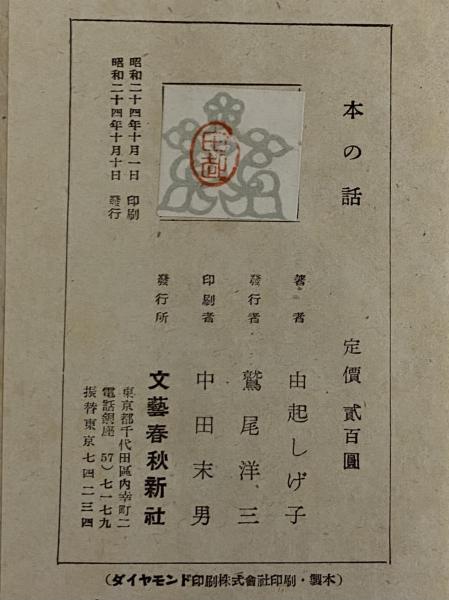 本の話
定價 貳百圓
著者 由起しげ子
發行者 鷲尾洋三
印刷者 中田末男
發行所 文藝春秋新社
東京都千代田區内幸町二
電話銀座 57)七一七九
振替東京七四二三四
昭和二十四年十月一日 印刷
昭和二十四年十月十日 發行
(ダイヤモンド印刷株式會社印刷・製本)